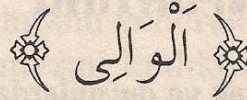 اَلْوَالِي